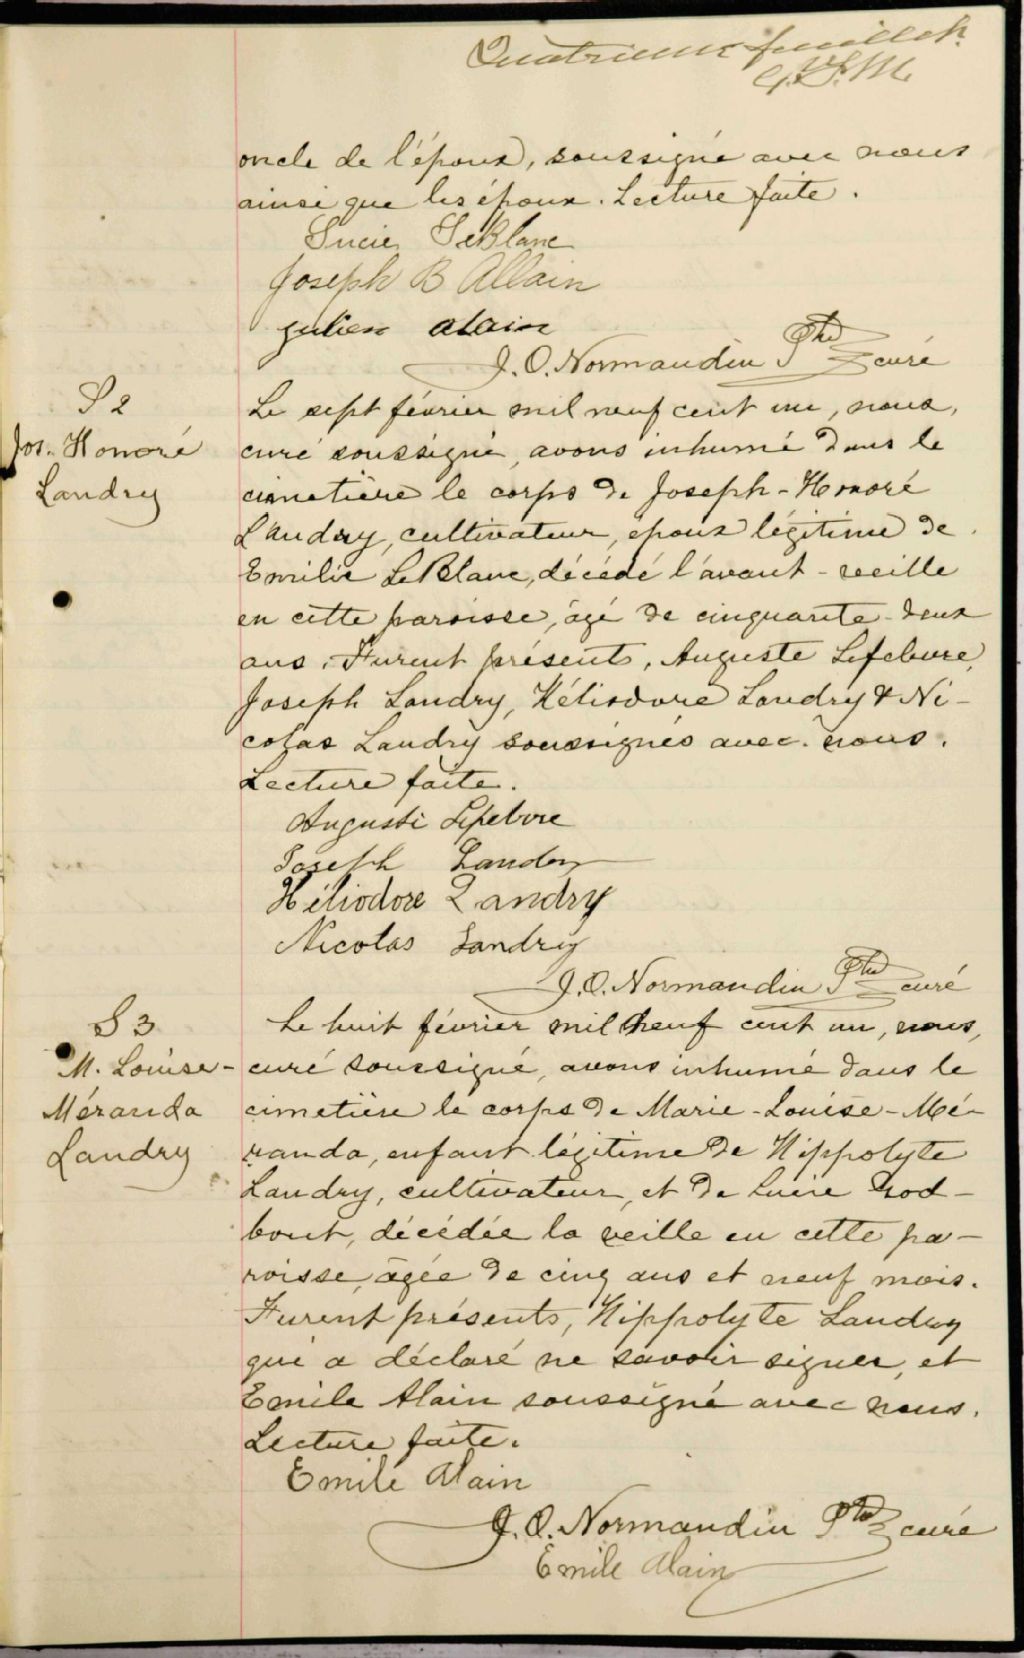 Quatrieme feuillet.
oncle de l'époux, soussigné avec nous
ainsi que les époux. Lecture faite.
Lucie LeBlanc
Joseph B Allain
julien alain
J. O. Normandin Ptre curé
S 2
Jos. Honoré
Landry
Le sept février mil neuf cent un, nous,
curé soussigné, avons inhumé dans le
cimetière le corps de Joseph-Honoré
Landry, cultivateur, époux légitime de
Emilie LeBlanc, décédé l'avant-veille
en cette paroisse, âgé de cinquante-deux
ans. Furent présents, Auguste Lefebvre,
Joseph Landry, Héliodore Landry & Ni-
colas Landry soussignés avec nous.
Lecture faite.
Auguste Lefebvre
Joseph Landry
Héliodore Landry
Nicolas Landry
J. O. Normandin Ptre curé
S 3
M. Louise-
Méranda
Landry
Le huit février mil neuf cent un, nous,
curé soussigné, avons inhumé dans le
cimetière le corps de Marie-Louise-Mé-
randa, enfant légitime de Hippolyte
Landry, cultivateur, et de Lucie God-
bout, décédée la veille en cette pa-
roisse, âgée de cinq ans et neuf mois.
Furent présents, Hippolyte Landry
qui a déclaré ne savoir signer, et
Emile Alain soussigné avec nous.
Lecture faite.
Emile Alain
J. O. Normandin Ptre curé
Emile Alain